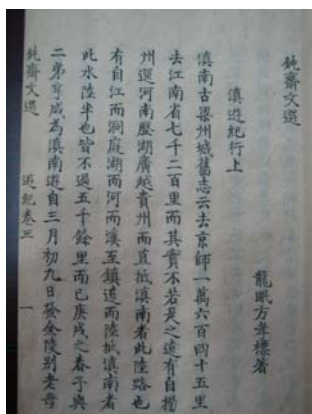 鈍齋文選
龍眠方孝標著
滇遊紀行上
滇南古梁州城舊志云去京師一萬六百四十五里
去江南省七千二百里而其實不若是之遠有自揚
州選河南歷湖廣越貴州而直抵滇南者此陸路也
有自江而洞庭湖而河而溪至鎮遠而陸抵滇南者
此水陸半也皆不過五千餘里而已庚戌之春予與
二弟亨咸為滇南遊自三月初九日發金陵別老母
鈍齋文選 遊紀卷三 一